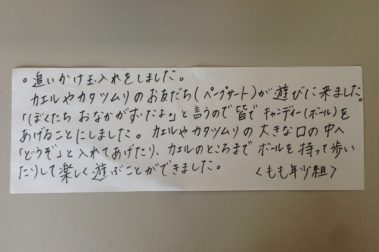 。追いかけ玉入れをしました。
カエルやカタツムリのお友だち(ペープサート)が遊びに来ました。
「ぼくたち おなかがすいたよ」と言うので皆でキャンディー(ボール)を
あげることにしました。カエルやカタツムリの大きな口の中へ
「どうぞ」と入れてあげたり、カエルのところまでボールを持って歩い
たりして楽しく遊ぶことができました。 〈もも年少組〉